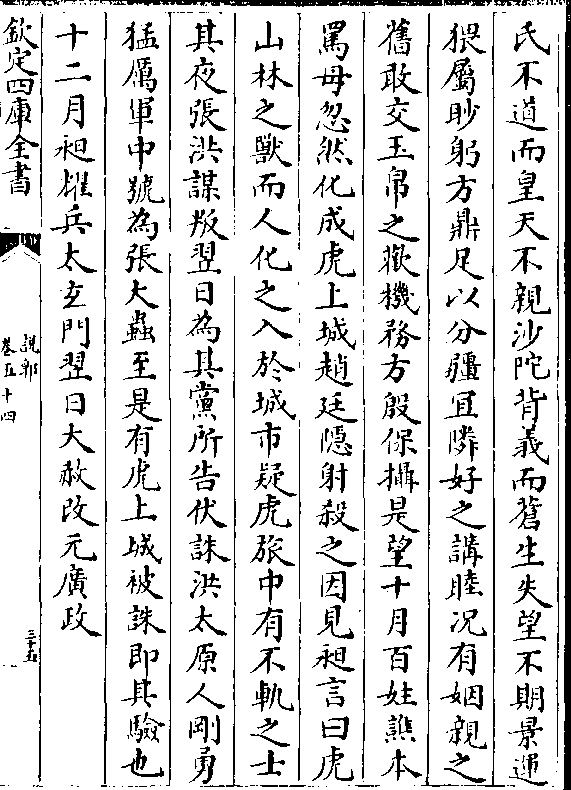 氏不道而皇天不親沙陀背義而蒼生失望不期景運
猥屬眇躬方鼎足以分疆宜隣好之講睦况有姻親之
舊敢交玉帛之歡機務方殷保攝是望十月百姓譙本
罵母忽然化成虎上城趙廷隱射殺之因見昶言曰虎
山林之獸而人化之入於城市疑虎旅中有不軌之士
其夜張洪謀叛翌日為其黨所告伏誅洪太原人剛勇
猛厲軍中號為張大蟲至是有虎上城被誅即其驗也
十二月昶耀兵太玄門翌日大赦改元廣政
欽定四庫全書
説郛
卷五十四
三十五